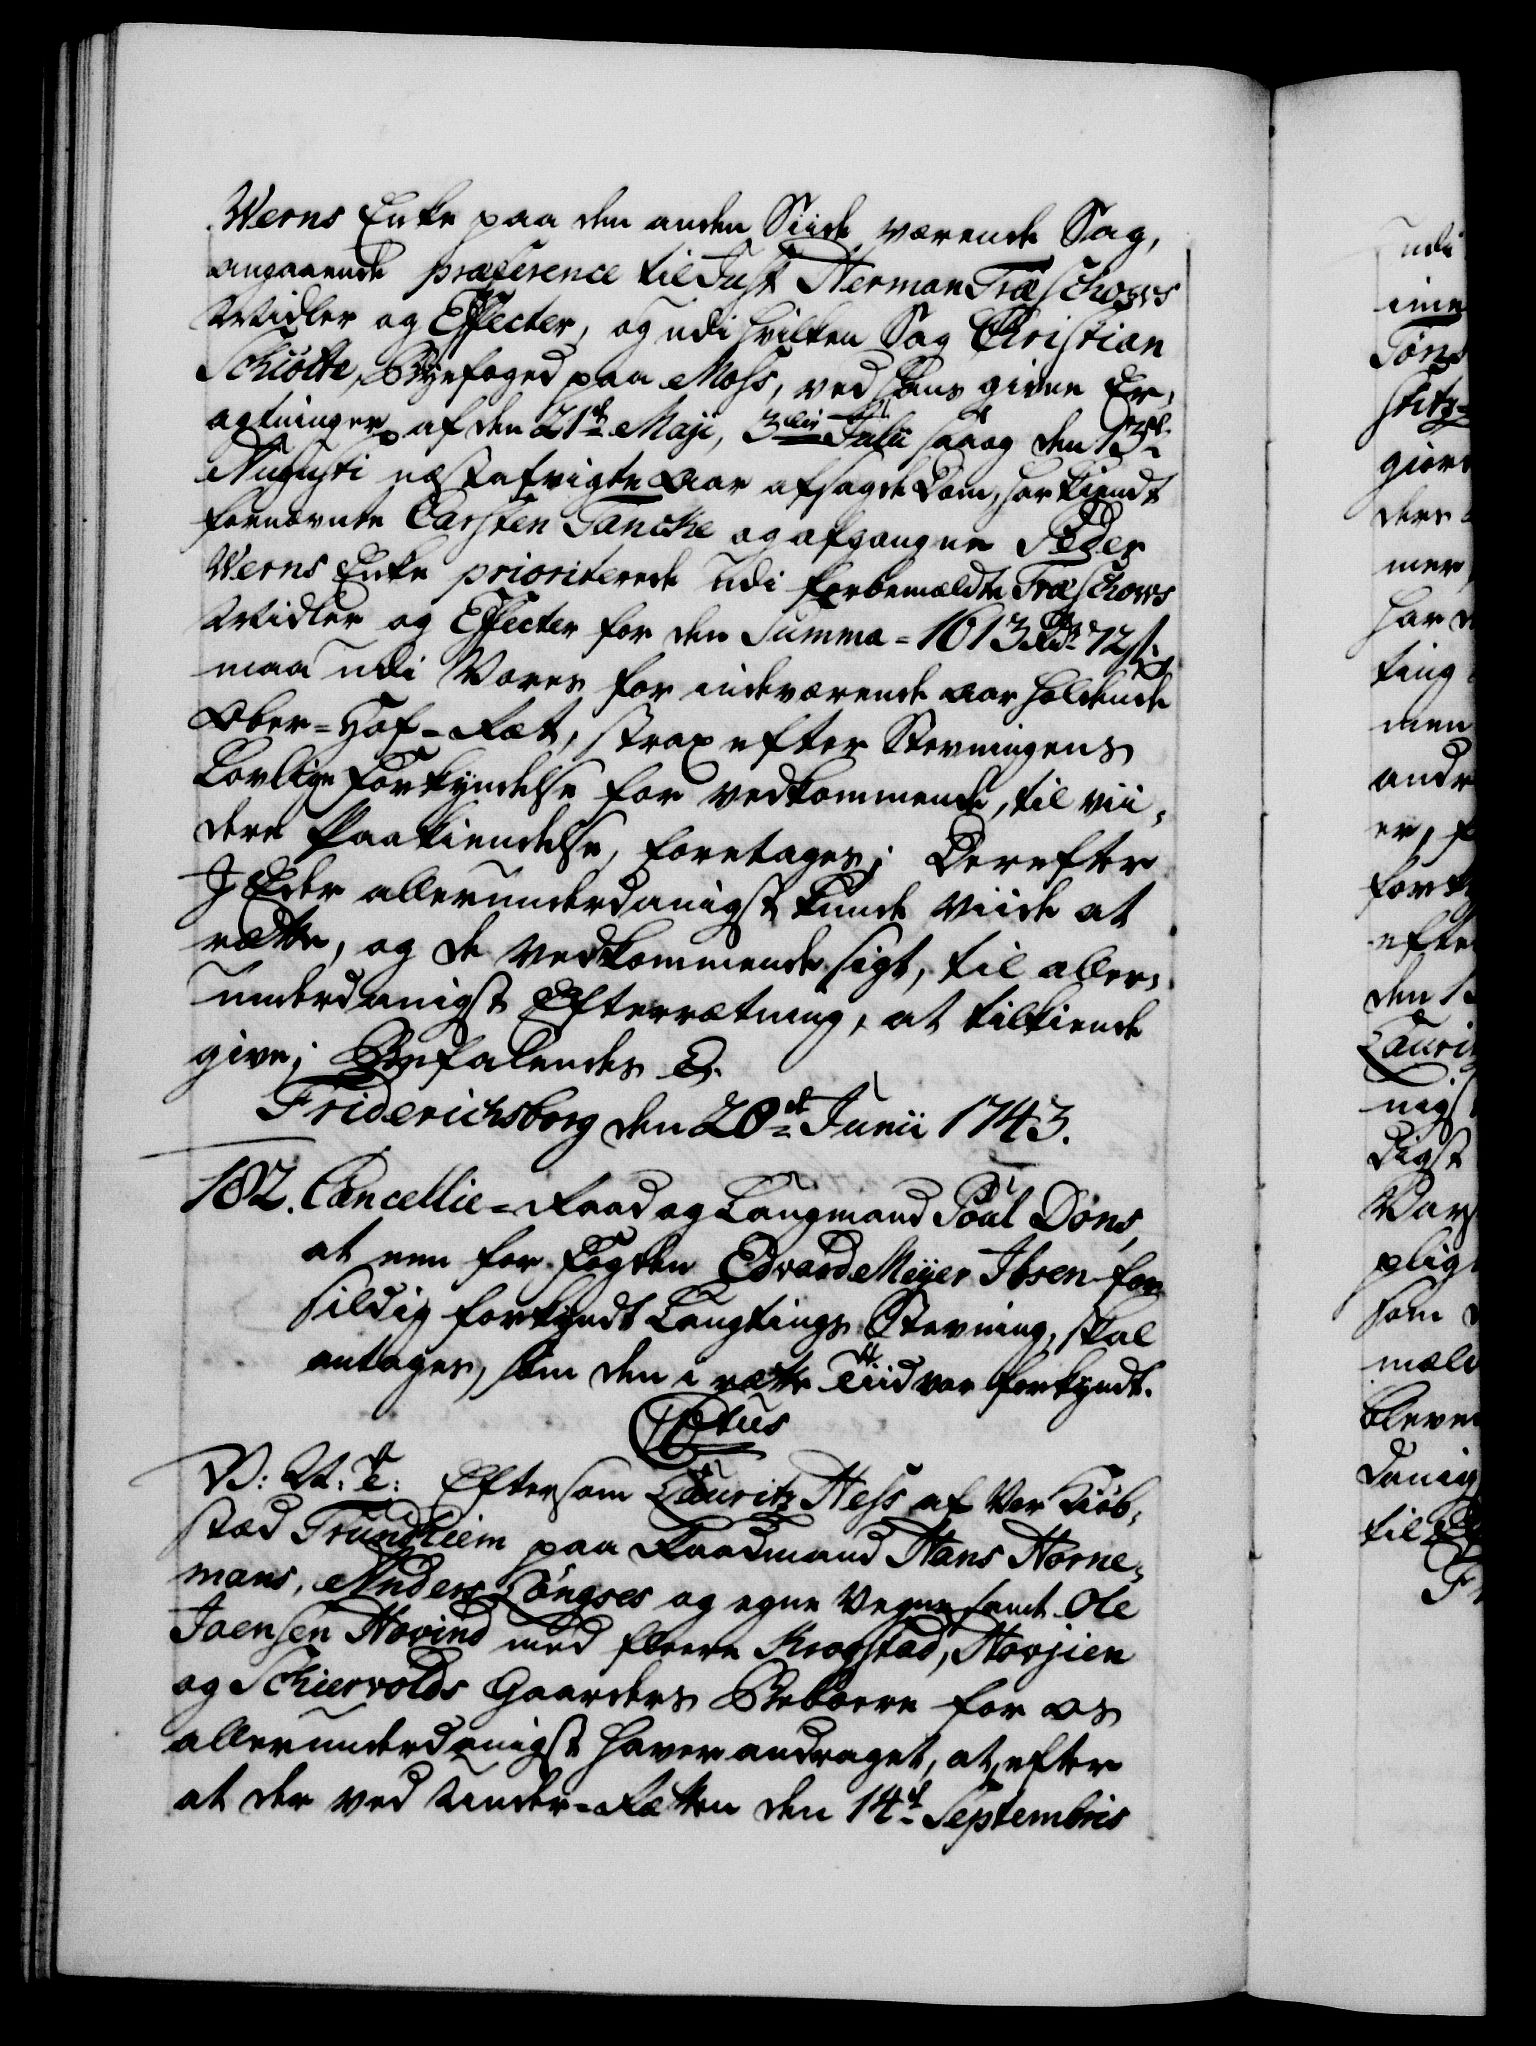 Werns Enke paa den anden Siide værende Sag,
angaaende præference til Just Herman Træschows
Midler og Effecter, og udi hvilken Sag Christian
Schiötte, Byefoged paa Moss, ved hans given Er-
agtninger af den 21de Maji, 3die Julii saa og den 13de
Augusti næstafvigte Aar afsagde Dom, har kiendt
fornævnte Carsten Tancke og afgangne Peder
Werns Enke prioriterede udi forbemældte Træschows
Midler og Effecter for den Summa = 1613 Rdr 72 s.
maa udi Vores for indeværende Aar holdende
Ober-Hof-Ræt, strax efter Stevningens
Lovlige Forkyndelse for vedkommende, til vii-
dere Paakiendelse, foretages; Derefter
I Eder allerunderdanigst kunde viide at
rætte, og de Vedkommende sligt, til aller-
underdanigst Efterrætning, at tilkiende
give; Befalendes &.
Friderichsborg den 28de Junii 1743.
182. Cancellie-Raad og Laugmand Poul Döns,
at een for Fogden Edvard Meyer Ibsen for
sildig forkyndt Laugtings Stevning, skal
antages, som den i rætte Tiid var forkyndt.
C6tus
V: G: T: Eftersom Lauritz Hess af Vor Kiöb-
stæd Trundhiem paa Raadmand Hans Horne-
mans, Anders Löngses og egne Vegne samt Ole
Joensen Hovind med fleere Krogstad, Hovjien
og Schiervolds Gaarders Beboere for os
allerunderdanigst haver andraget, at, efter
at der ved Under-Rætten den 14de Septembris